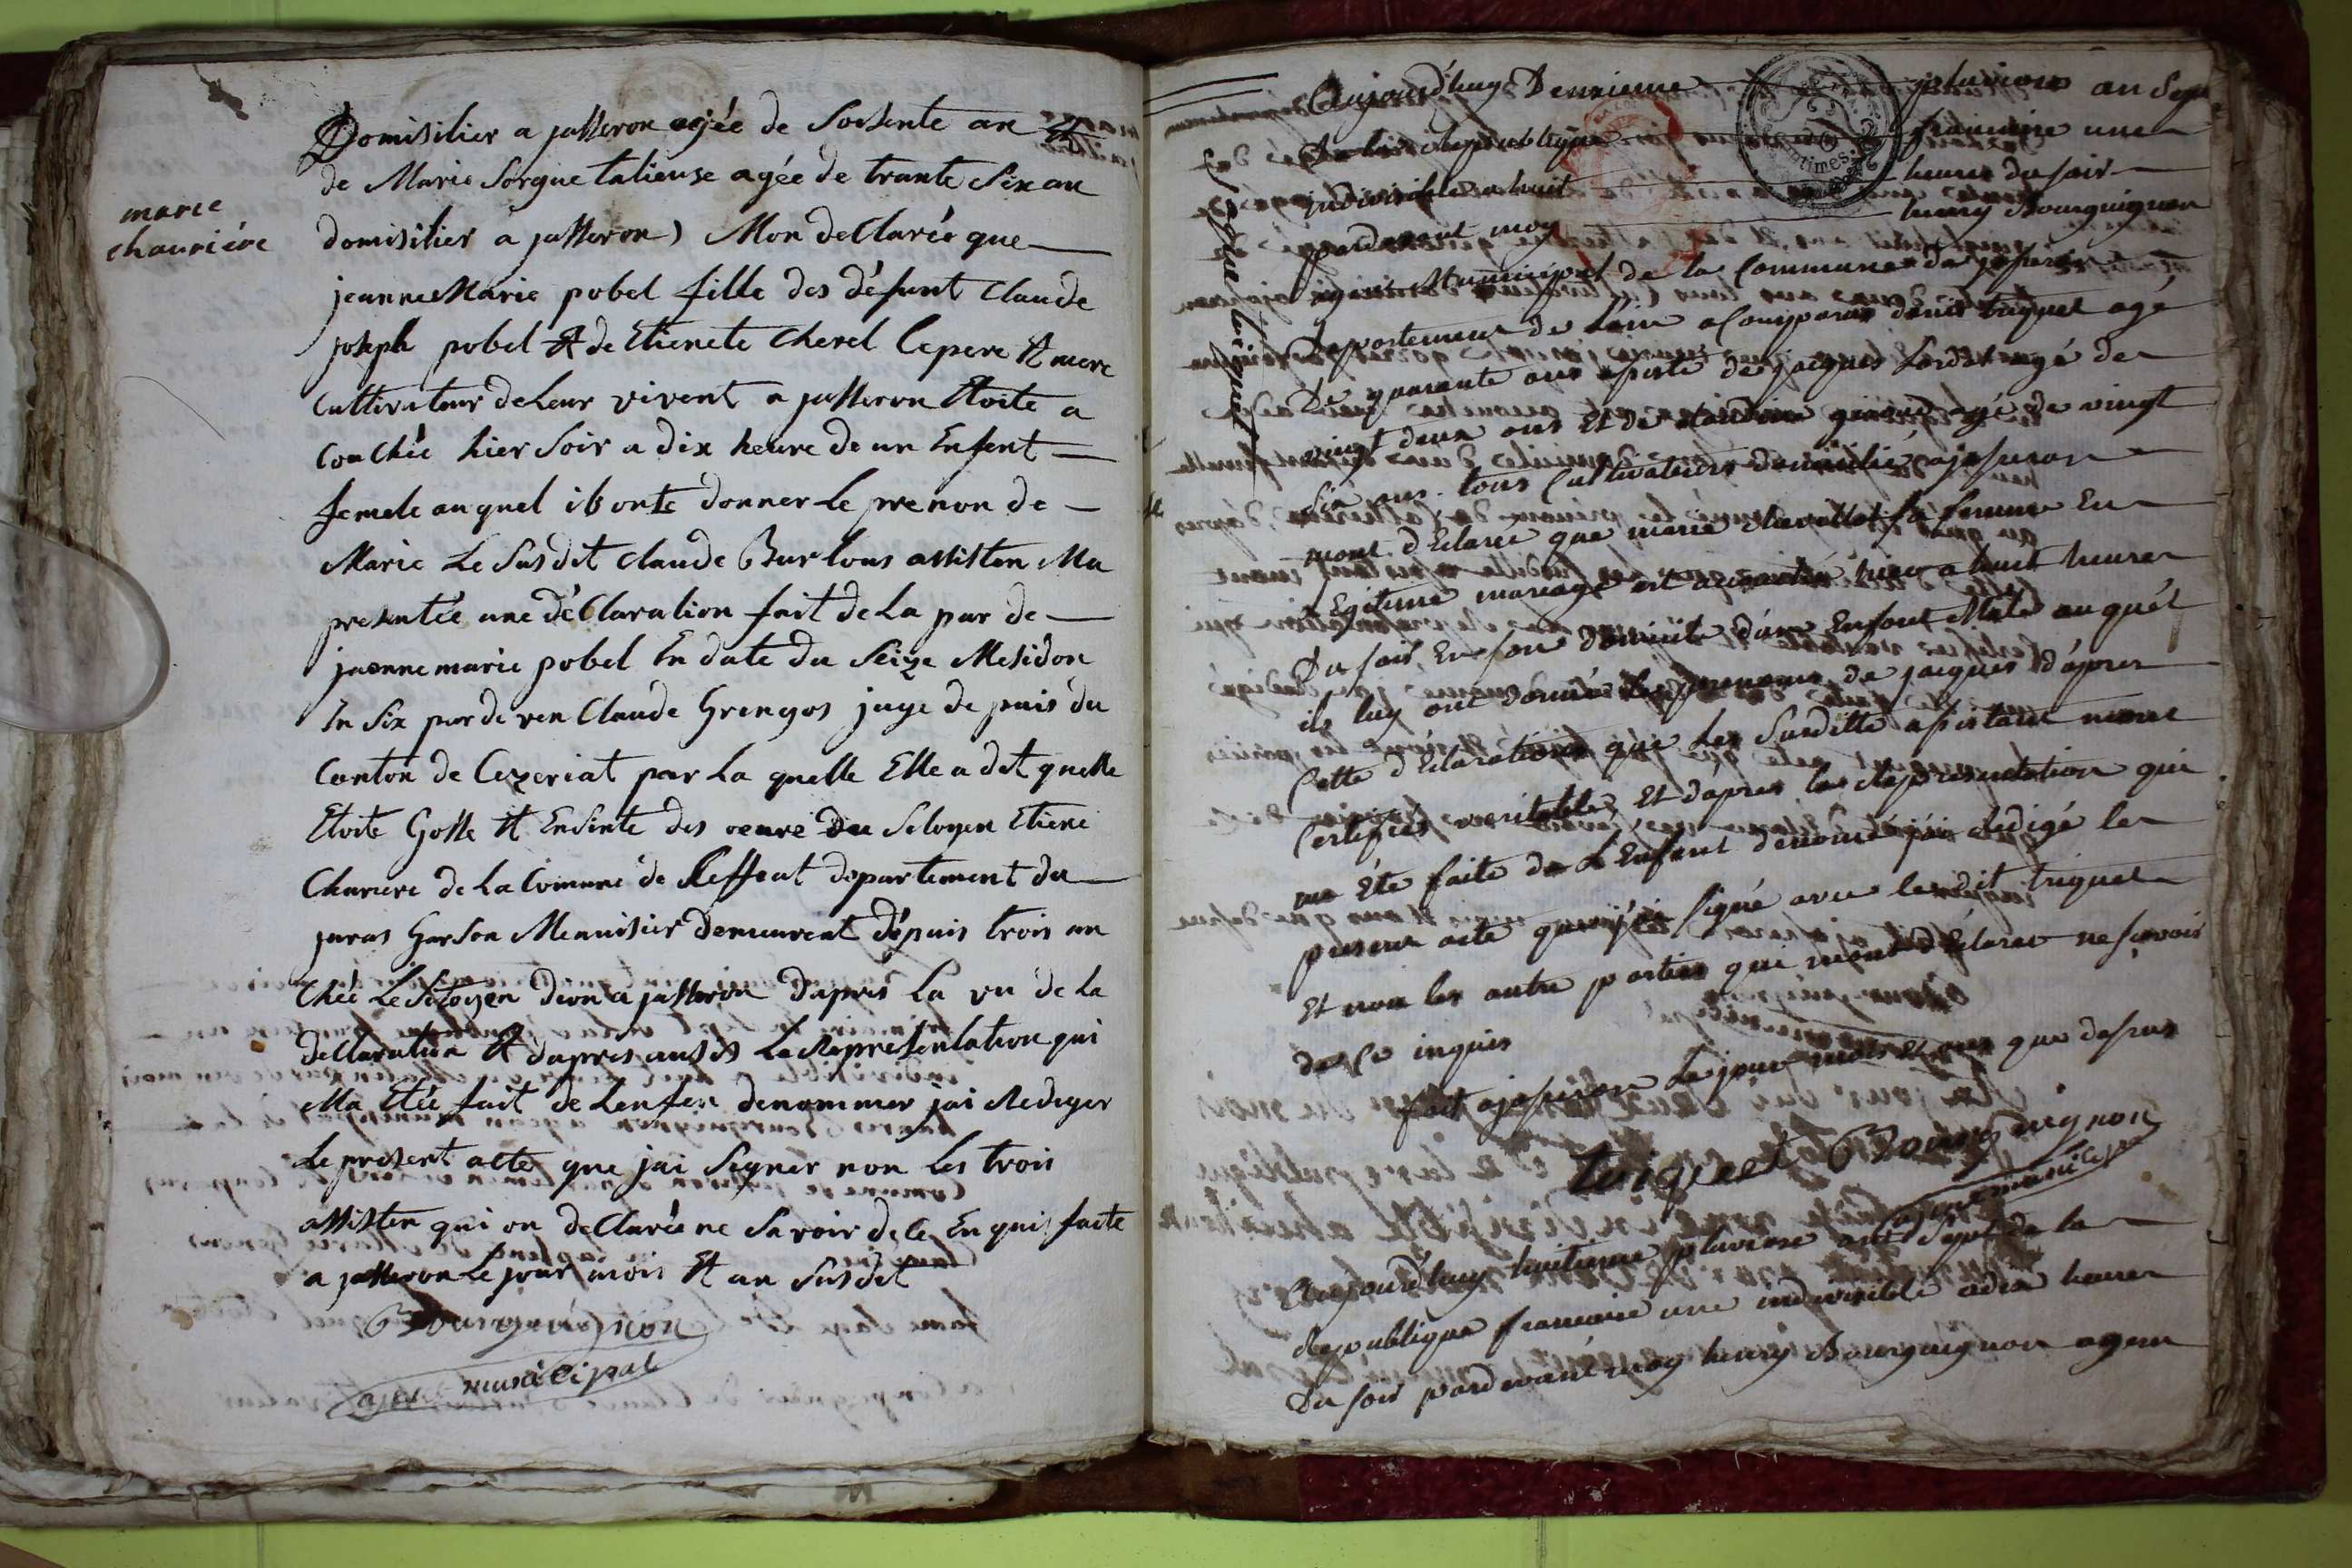 marie
chauriére
Domisilier a jasseron agée de Soisente an Et
de Marie Sorgue talieuse agée de trante Six an
domisilier a jasseron) Mon declarée que
jeanne Marie pobel fille des défunt Claude
joseph pobel Et de Etienete Cherel lepere Et mere
Cultivateur deleur vivent a jasseron Etoite a
Couchée hier Soir a dix heure de un Enfent
femele auquel ils onte donner Le prenon de
Marie Le Susdit Claude Bur tous assisten Ma
presentée une déClaration fait de la par de
jaennemarie pobel En date du Seize Mesidon
En Six par de ven Claude Grengos juge de pais du
Canton de Cezeriat par La quelle Elle a dit quelle
Etoite Gosse Et Ensinte des oeuvre du Sitoyen Etiene
Chariere de La Comune de departement du
juras Garson Menuisier demeurent dépuis trois an
Chée Le Sitoyen Dion a jasseron dapres La vu de la
declaration Et dapres ausis La Représentation qui
Ma Etée fait de Lenfen denommer jai Rediger
Le present acte que jai Signer non Les trois
assisten qui on declarée ne Savoir de ce Enquis faite
a jasseron Le jour mois Et an Susdit
Bourguignon
agent municipal
jacques triquet
Aujourd'huy Deuxieme pluviose an Sept
De la Republique francaise une
indivisible a huit heures du soir
pardevant moy henry Bourguignon
agent Municipal de la Commune de jasseron
Departement de l'ain a Comparus denis triquet agé
De quarante ans assisté de jacques Sordet agé de
vingt deux ans Et de Claudine agé de vingt
Six ans tous Cultivateurs domicilié ajasseron
mont d'Eclaree que marie Chavallet sa femme En
legitime mariage est accouchée hier a huit heures
Du soir En son domicile d'un Enfant Male au quél
ils luy ont donnée le prenoms de jacques d'apres
Cette d'Eclaration que les Susditte assistant mont
Certifiés veritable Et d'apres la Representation qui
ma Ete faite de L'Enfant denomé j'ai Redigé le
present acte que j'ai Signé avec le dit triquet
Et non les autre parties qui mont d'Eclaree ne savoir
de Ce inquis
fait ajasseron Le jour mois et ans que desus
triquet Bourguignon
agent municipal
Aujourd'huy huitieme pluviose an Sept de la
Republique francaise une indivisible adix heures
Du soir pardevant moy henry Bourguignon agent